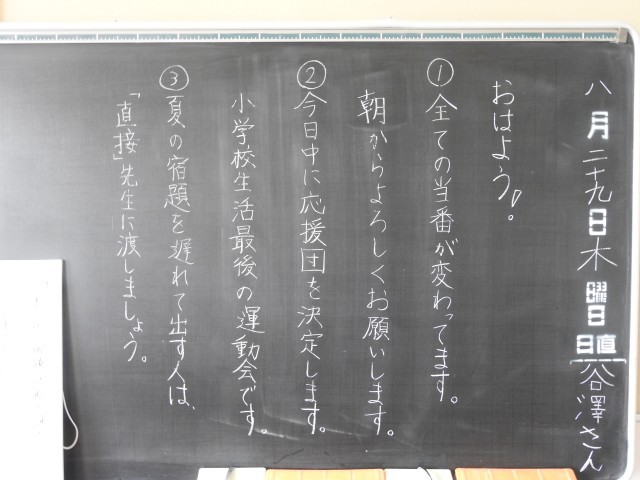 八月二十九日木曜日 日直 谷澤さん
おはよう!。
①全ての当番が変わってます。
朝からよろしくお願いします。
②今日中に応援団を決定します。
小学校生活最後の運動会です。
③夏の宿題を遅れて出す人は、
「直接」先生に渡しましょう。